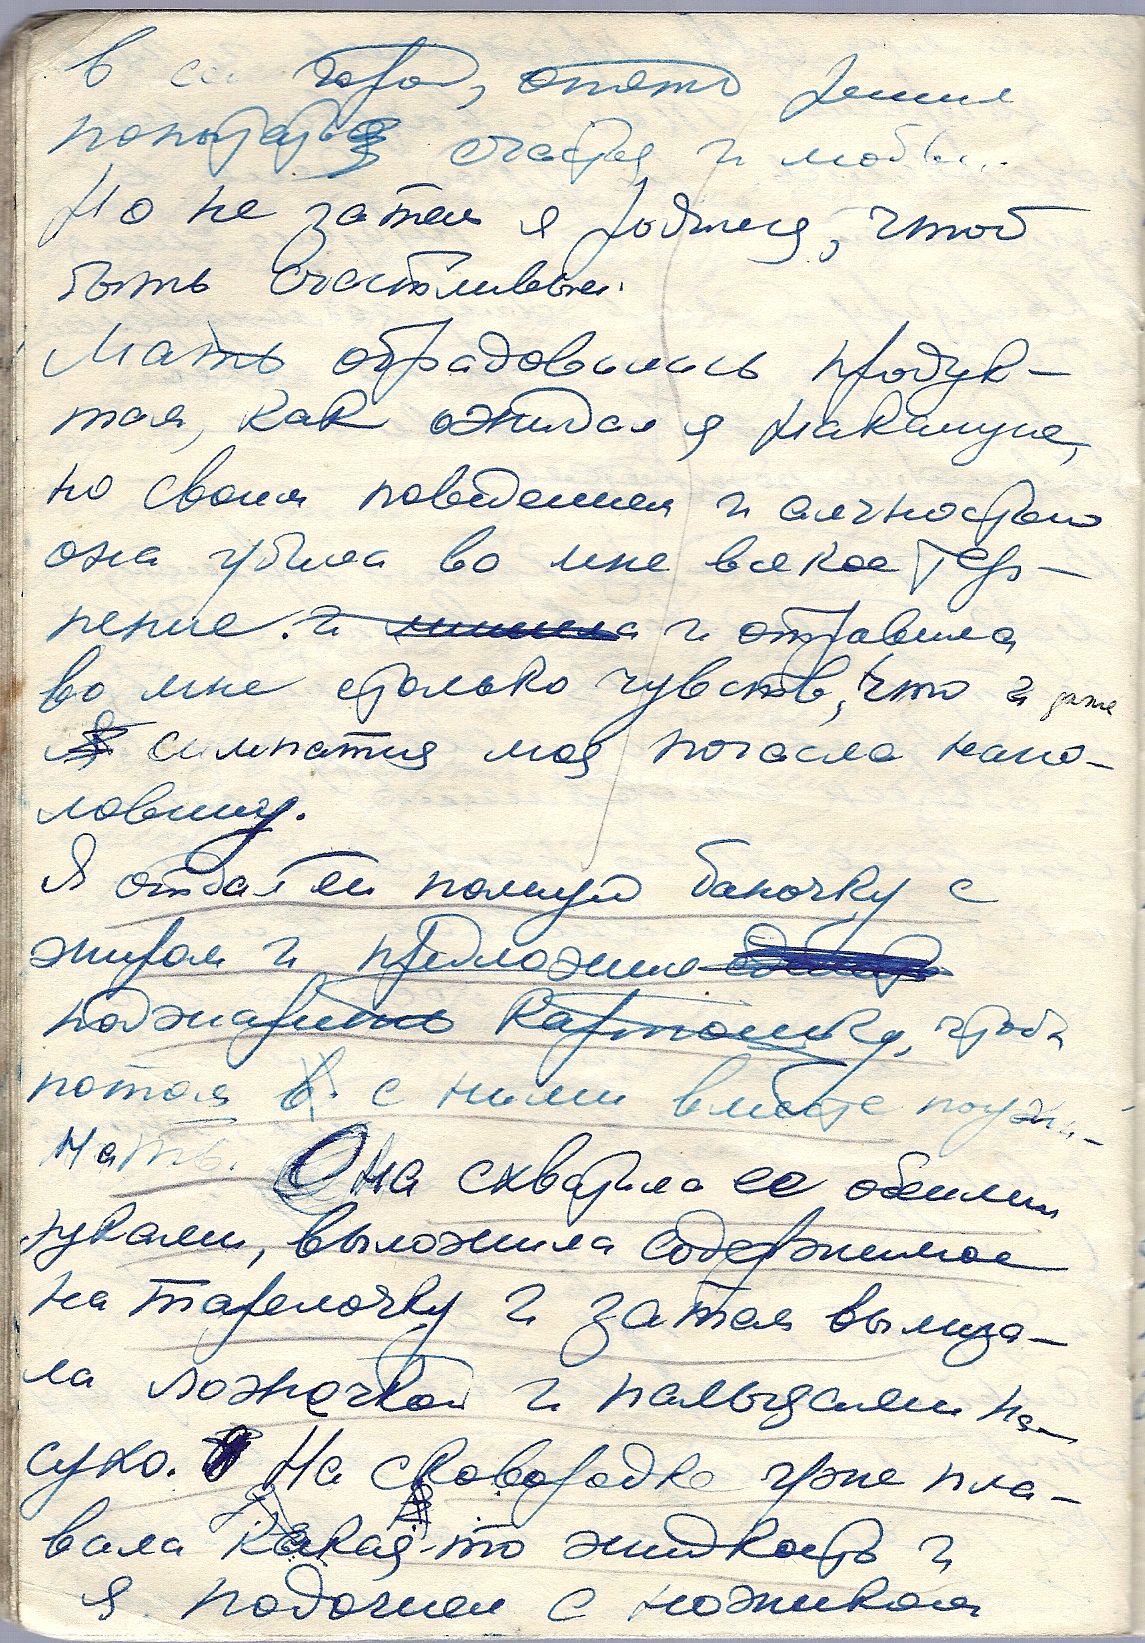 В сей город, опять решил
попытать счастья и любви.
Но не затем я родился, чтоб
быть счастливым.
Мать обрадовалась продук-
там, как ожидал я накануне,
но своим поведением и алчностью
она убила во мне всякое тер-
пение. и и отравила
во мне столько чувств, что и даже
симпатия моя погасла напо-
ловину.
Я отдал ей полную баночку с
жиром и предложил
поджарить картошку, чтоб
потом с ними вместе поужи-
нать. Она схватила ее обеими
руками, выложила содержимое
на тарелочку и затем вылиза-
ла ложечкой и пальцами на-
сухо. На сковородке уже пла-
вала какая-то жидкость и
я подошел с ножиком